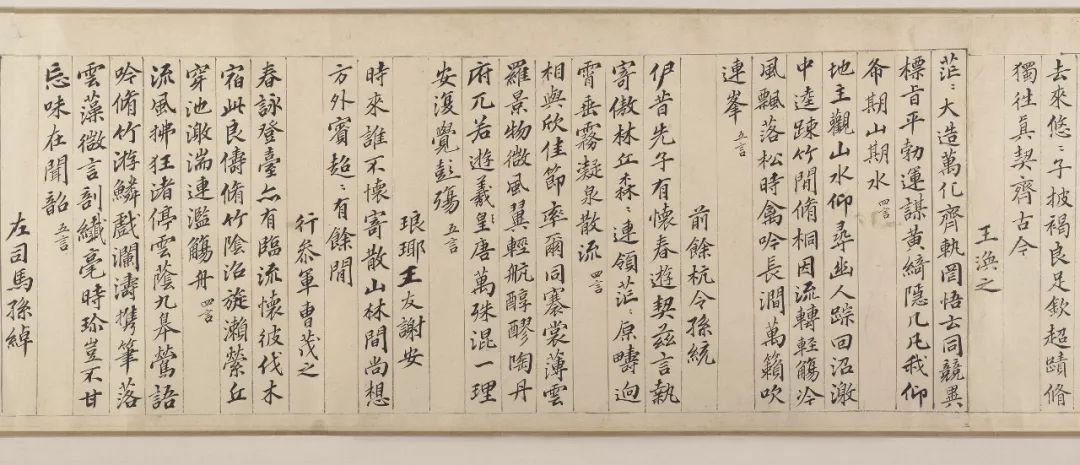 去來悠〻子披褐良足欽超蹟脩
獨往真契齊古今
王渙之
茫〻大造萬化齊軌罔悟玄同競異
標旨平勃運謀黃綺隱几凡我仰
希期山期水 四言
地主觀山水仰尋幽人踪回沼激
中逵踈竹間脩桐因流轉輕觴冷
風飄落松時禽吟長澗萬籟吹
連峯 五言
前餘杭令孫統
伊昔先子有懷春遊契茲言執
寄傲林丘森〻連領茫〻原疇迥
霄垂霧凝泉散流 四言
相與欣佳節率爾同褰裳薄雲
羅景物微風翼輕航醇醪陶丹
府兀若遊羲皇唐萬殊混一理
安復覺彭殤 五言
琅瑘王友謝安
時來誰不懷寄散山林間尚想
方外賓超〻有餘閒
行參軍曹茂之
春詠登臺亦有臨流懷彼伐木
宿此良儔脩竹陰沼旋瀨縈丘
穿池激湍連濫觴舟 四言
流風拂枉渚停雲蔭九皋鶯語
吟脩竹游鱗戲瀾濤攜筆落
雲藻微言剖纖毫時珍豈不甘
忘味在聞韶 五言
左司馬孫綽